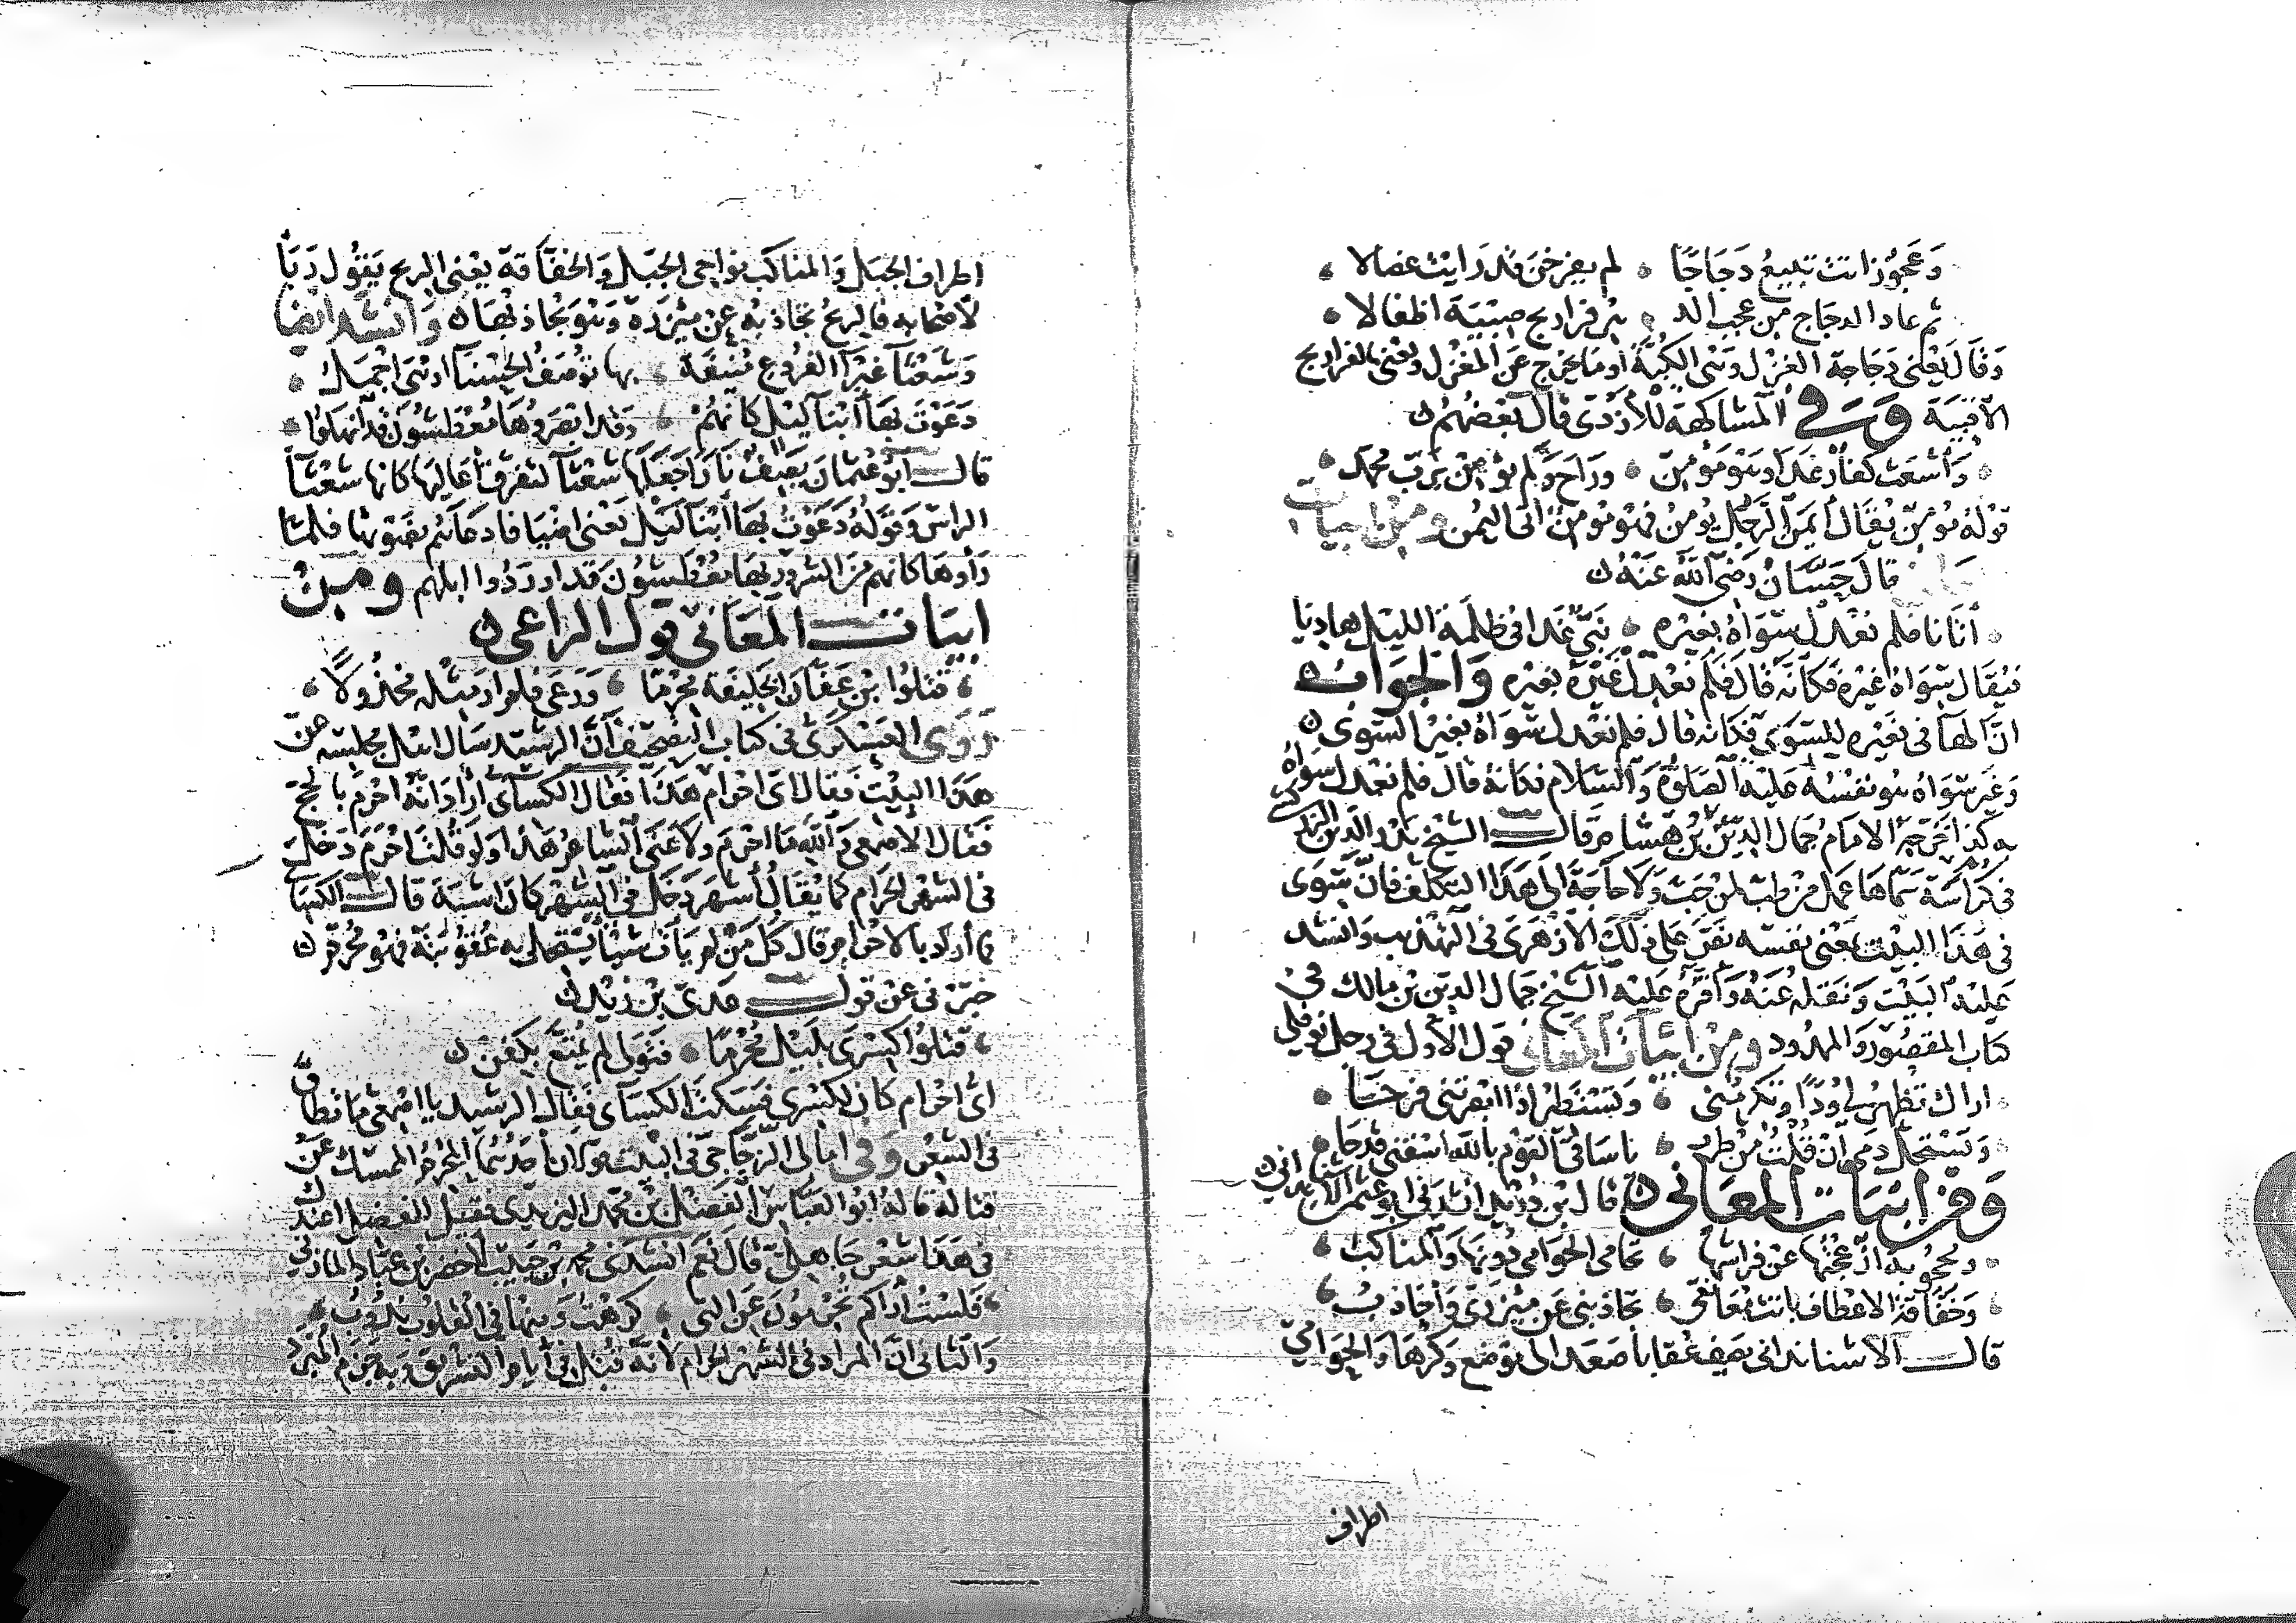 وَعَجُوزًا اتت تبيعُ دَجَاجًا ۰ لم يفرخن قد رَايت عضالا ۰
ثم عاد الدجاج من عجب الد ۰ هر فراريج صِبْيَة اطفالا ۰
وَقَالَ يَعْنى دَجَاجة الغزل وَهى الكُبَّة او مَا يخرج عَن المغزل ويَعْنى بالفراريج
الاقبية وَفي المشاكهة للأزدى قال بعضهم
۰ وَأَشعث كفار غدا وهو مؤمن ۰ وراح وَلم يؤمن برب محمد ۰
قوله مؤمن يُقَال أيمن الرجل يُومن فهو مُومن اتى اليمن وَمن ابيات
قالَ حَسَّان رَضى الله عَنْه
۰ أتانا فلم نعدل سوَاهُ بغيره ۰ نبيّ غدا في ظلمة الليل هاديا
فيُقَال سوَاهُ غيره فكأنه قال فلم نعدل غيرَه بغيره وَالجَوَاب
انّ الهَا في بغيره للسوى فكانه قال فلم نعدل سواهُ بغير السوى
وَغير سوَاهُ هو نفسُه عَليه الصلوة وَالسَّلام فكانهُ قال فلم نعدل سوَاهُ
به كذا خَرجَه الامَامُ جمال الدين بن هشام وقال الشيخ بدر الدين الزركشي
في كراسَة سمّاها عمل من طب لمن حب وَلا حاجَة الى هَذا التكلف فانّ سوى
في هَذا البَيْت بمعنى نفسه نص على ذلك الأزهَرى في التهذيب وَانشد
عَليْه البَيْت وَنقله عَنه وَأقرّه عَليْه الشيخ جمال الدين بن مالك في
كتاب المقصُور وَالممدُود وَمِنْ ابيات المعَانى قول الأول في رجل نوفلي
۰ اراك تظهر لى وُدًّا وتكرمُنى ۰ وَتستَطير اذا ابصرتنى فرحَا ۰
۰ وَتستحل دَمي ان قلت من طرب ۰ يا سَاقى القوم بالله اسقنى قدحَا ۰
وَمن ابيَات المعَاني قال بن دُريد انشدَنى ابو عثمَن الاشنانداني
۰ ومحجُوبة ازعجتُها عن فراشها ۰ تحامى الحوَامى دُونها وَالمناكبُ ۰
۰ وَخفاقة الاعطاف باتت مُعَانقى ۰ تجاذبنى عن مئزرى وَأجاذبُ ۰
قالـــ الأشناندانى يَصِف عُقابا صَعد الى مَوْضع وَكرهَا وَالحوَامي
اطراف
اطراف الجبَل وَالمناكب نوَاحى الجبَل وَالخفاقة يعْنى الريح يقول رَبأ
لأصحابه فالريحُ تجاذبه عن مئزره وَهو يجاذبهَا وَانشد ايضا
وَشعثآ غبرآ الفروع مُنيفَة ۰ بها توصَفُ الحسنآ او هى اجمَل ۰
دَعَوْت بهَا أبْنآ ليْل كانهُمْ ۰ وَقد ابصَروهَا مُعْطِشُونَ قد انهلُوا ۰
قالـــ أبو عُثمان يَصف نارًا جَعلهَا شعْثآ لتفرق أعَاليها كانها شعْثآ
الراس وَقولهُ دَعَوْتُ بهَا أبْنآ لَيْل يَعْنى اضيَافا دعَاهُم بضَوئها فلمّا
رَأوها كانهم منَ السُّرور بهَا مُعطِشُونَ قد اورَدُوا ابلهم وَمِنْ
ابيَاتـــ المعَاني قول الراعى
۰ قتلوُا بْن عفّان الخليفَة مُحْرِمًا ۰ وَدَعى فلم ار مثله مخذُولًا ۰
رَوَى العَسْكَرى في كتاب التصحيف أنّ الرشيد سَال اهل مجلسه عن
هَذا البيْت فقال اى احرَام هَذا فقال الكسآى أرادَ انهُ احرَم بالحجّ
فقال الاصمَعى وَالله مَا احرَم وَلا عَنى الشاعرُ هَذا وَلو قلت احْرَمَ دَخل
في الشهر الحرَام كما يُقال أشهَر دَخل في الشهر كان اشبَه قالـــ الكسآى
ما أراد بالاحرَام قال كل مَنْ لم يَأت شيئا يستحل به عُقوبَة فهو مُحْرِم
خبّرنى عَن قولـــ عَدىّ بْن زيْد
۰ قتلوُا كِسْرَى بليْل مُحْرمًا ۰ فتولى لم يُمتَّع بكفَنْ
اىُّ احرَام كان لكسْرى فسَكت الكسآى فقال الرشيد يا اصْمعى مَا تطاق
في الشعْر وَفى امَالى الزجَّاجى في البيْت قولان أحَدُهُمَا المحْرمُ الممسك عَنْ
قتاله قاله ابو العَبَّاس الفضل بْن محمد اليزيدى فقيل للفضل اعندك
في هَذا شعْر جَاهليّ قال نعَم انشدَنى محمد بْن حَبيب لأخضر بْن عبّاد المازنى
۰ فلسْتُ أرَاكم تُحْرِمُونَ عَن التى ۰ كرهْت وَمنْهَا في القلُوب ندُوبُ ۰
وَالثانى انّ المراد في الشهر الحرَام لأنه قُتِل في أيام التشريق وَبه جزم المبرّد